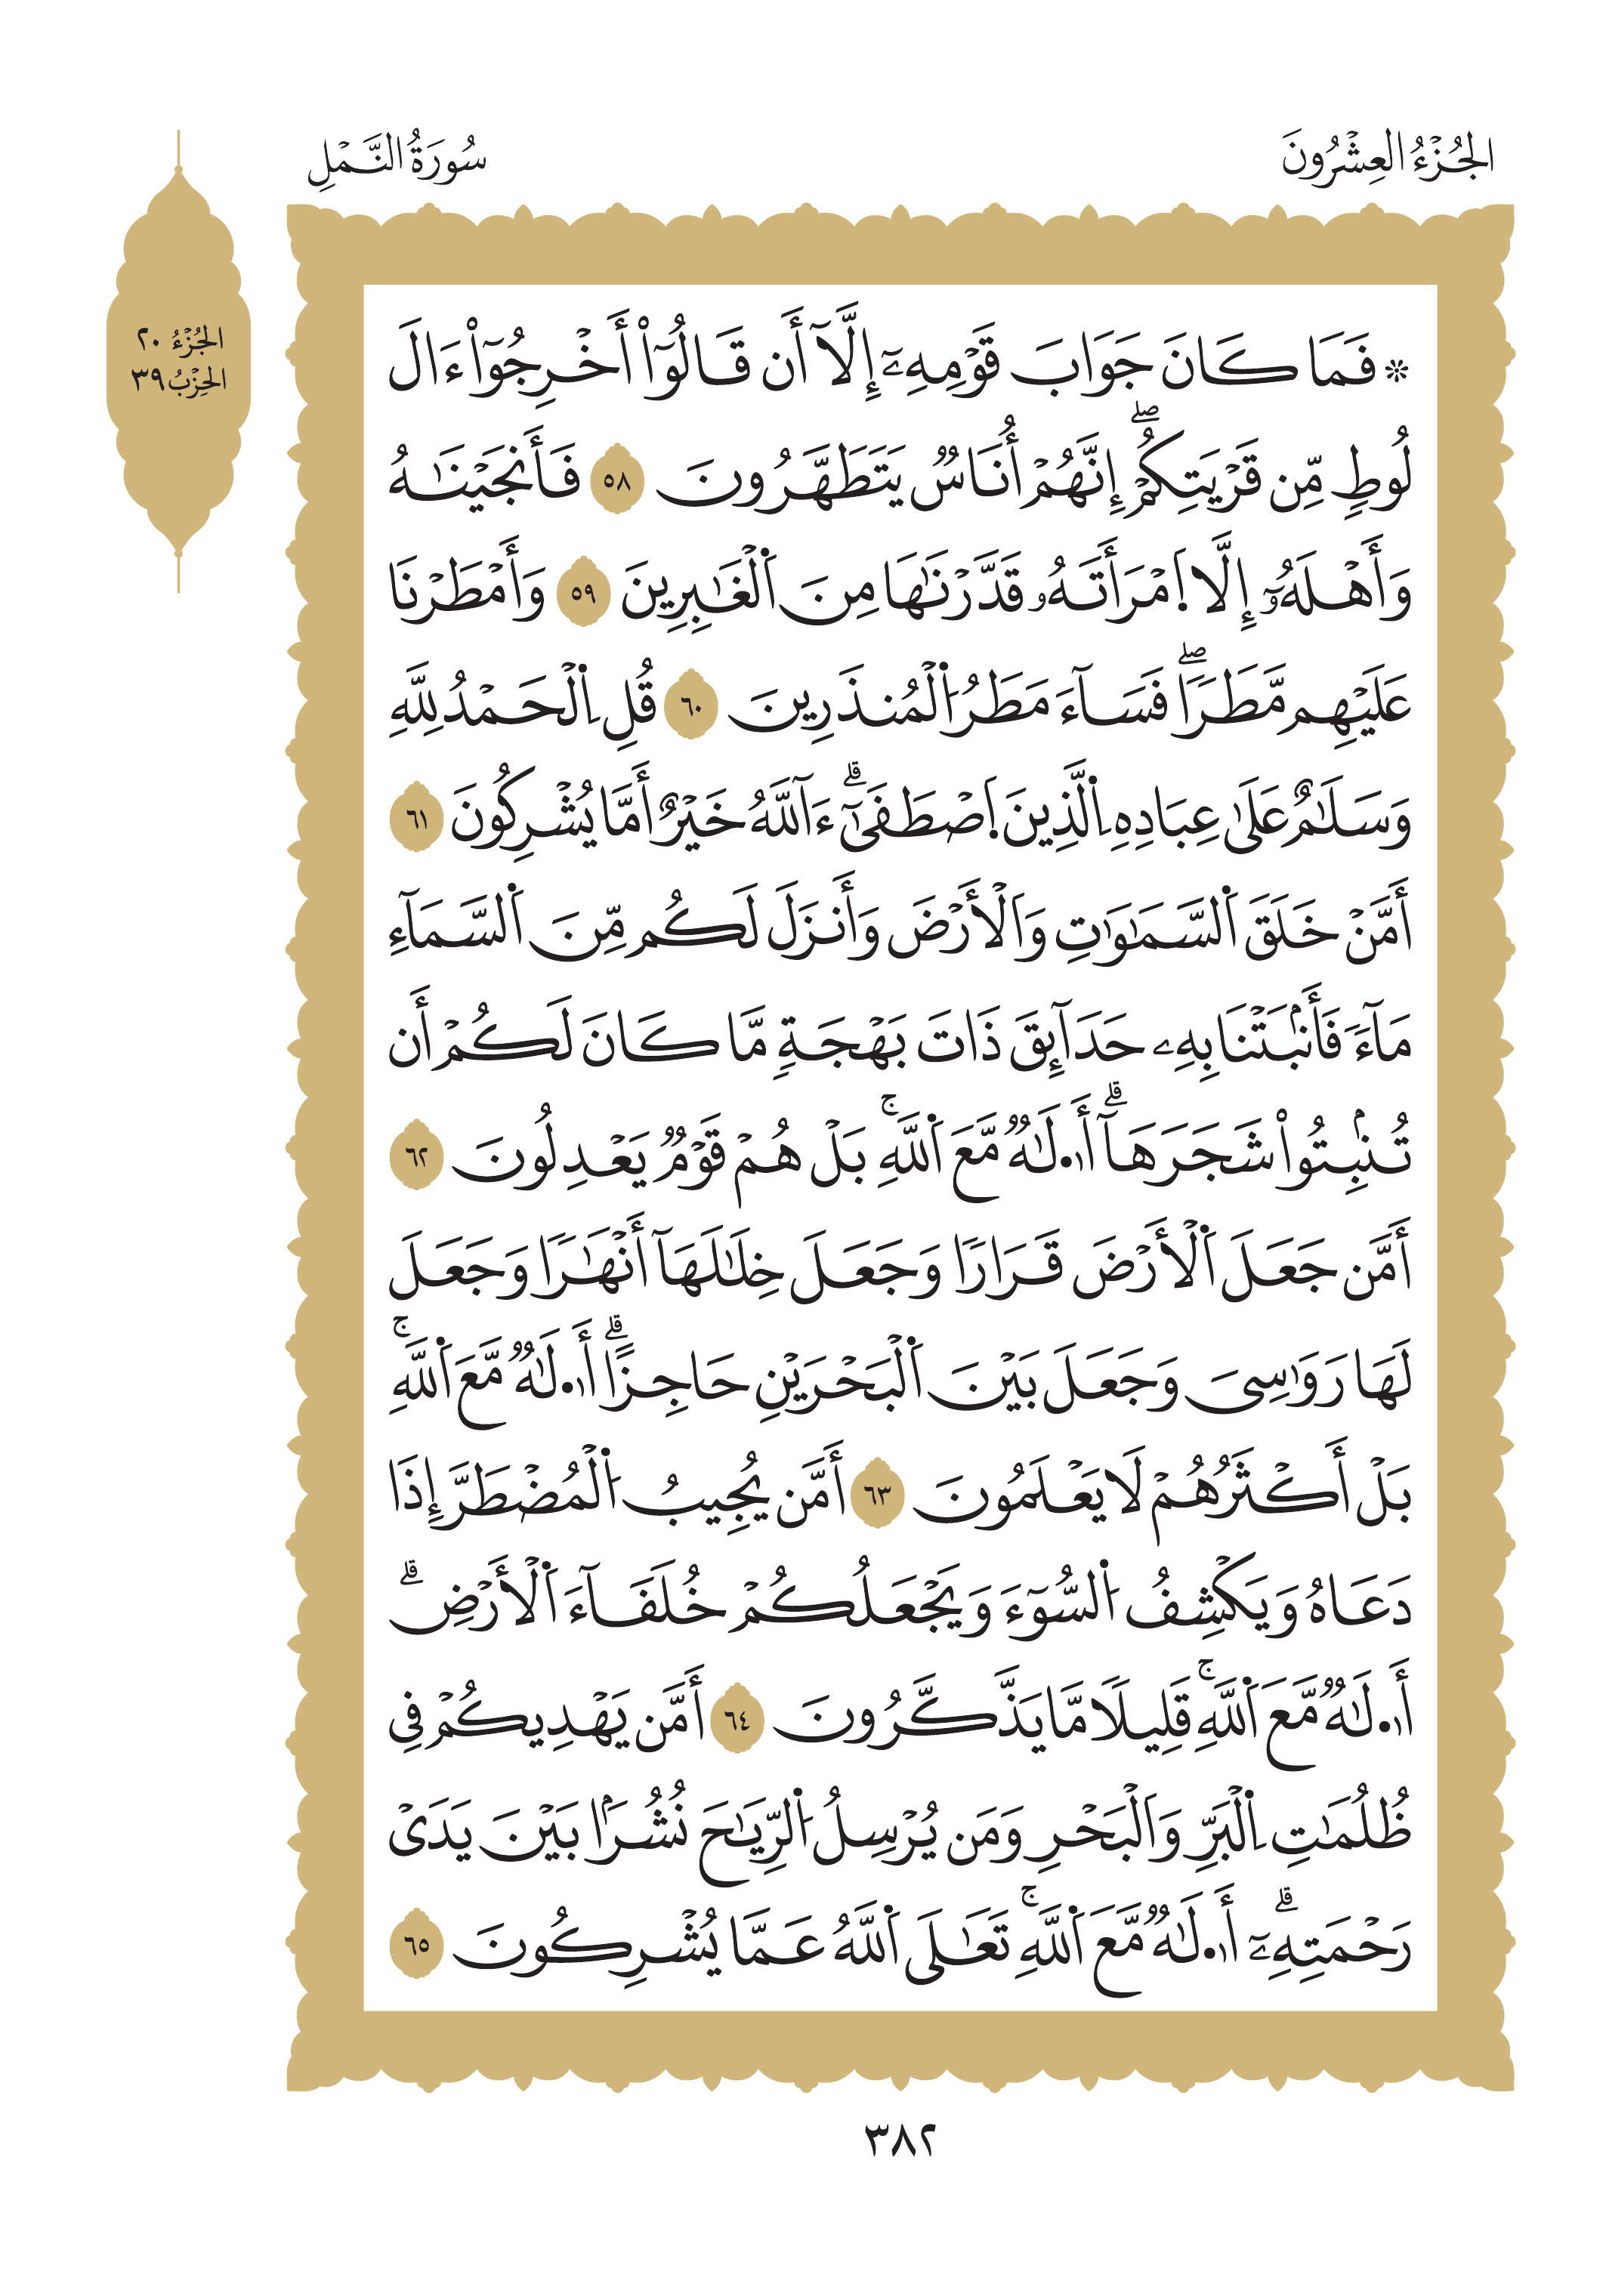 الجُزْءُ العِشْرُونَ
سُورَةُ النَّمْلِ
الجُزْءُ ٢٠
الحِزْبُ ٣٩
۞ فَمَا كَانَ جَوَابَ قَوْمِهِۦٓ إِلَّآ أَن قَالُوٓاْ أَخْرِجُوٓاْ ءَالَ
لُوطٖ مِّن قَرْيَتِكُمْۖ إِنَّهُمْ أُنَاسٞ يَتَطَهَّرُونَ ٥٨ فَأَنجَيْنَٰهُ
وَأَهْلَهُۥٓ إِلَّا اَ۪مْرَأَتَهُۥ قَدَّرْنَٰهَا مِنَ اَ۬لْغَٰبِرِينَ ٥٩ وَأَمْطَرْنَا
عَلَيْهِم مَّطَراٗۖ فَسَآءَ مَطَرُ اُ۬لْمُنذَرِينَ ٦٠ قُلِ اِ۬لْحَمْدُ لِلَّهِ
وَسَلَٰمٌ عَلَىٰ عِبَادِهِ اِ۬لَّذِينَ اَ۪صْطَفَىٰٓۗ ءَآللَّهُ خَيْرٌ أَمَّا يُشْرِكُونَ ٦١
أَمَّنْ خَلَقَ اَ۬لسَّمَٰوَٰتِ وَالْأَرْضَ وَأَنزَلَ لَكُم مِّنَ اَ۬لسَّمَآءِ
مَآءٗ فَأَنۢبَتْنَا بِهِۦ حَدَآئِقَ ذَاتَ بَهْجَةٖ مَّا كَانَ لَكُمْ أَن
تُنۢبِتُواْ شَجَرَهَآۗ أَ۟لَٰهٞ مَّعَ اَ۬للَّهِۚ بَلْ هُمْ قَوْمٞ يَعْدِلُونَ ٦٢
أَمَّن جَعَلَ اَ۬لْأَرْضَ قَرَاراٗ وَجَعَلَ خِلَٰلَهَآ أَنْهَٰراٗ وَجَعَلَ
لَهَا رَوَٰسِىَ وَجَعَلَ بَيْنَ اَ۬لْبَحْرَيْنِ حَاجِزاًۗ أَ۟لَٰهٞ مَّعَ اَ۬للَّهِۚ
بَلْ أَكْثَرُهُمْ لَا يَعْلَمُونَ ٦٣ أَمَّن يُجِيبُ اُ۬لْمُضْطَرَّ إِذَا
دَعَاهُ وَيَكْشِفُ اُ۬لسُّوٓءَ وَيَجْعَلُكُمْ خُلَفَآءَ اَ۬لْأَرْضِۗ
أَ۟لَٰهٞ مَّعَ اَ۬للَّهِۚ قَلِيلاٗ مَّا يَذَّكَّرُونَ ٦٤ أَمَّن يَهْدِيكُمْ فِى
ظُلُمَٰتِ اِ۬لْبَرِّ وَالْبَحْرِ وَمَن يُرْسِلُ اُ۬لرِّيَٰحَ نُشُراَۢ بَيْنَ يَدَىْ
رَحْمَتِهِۦٓۗ أَ۟لَٰهٞ مَّعَ اَ۬للَّهِۚ تَعَٰلَى اَ۬للَّهُ عَمَّا يُشْرِكُونَ ٦٥
٣٨٢